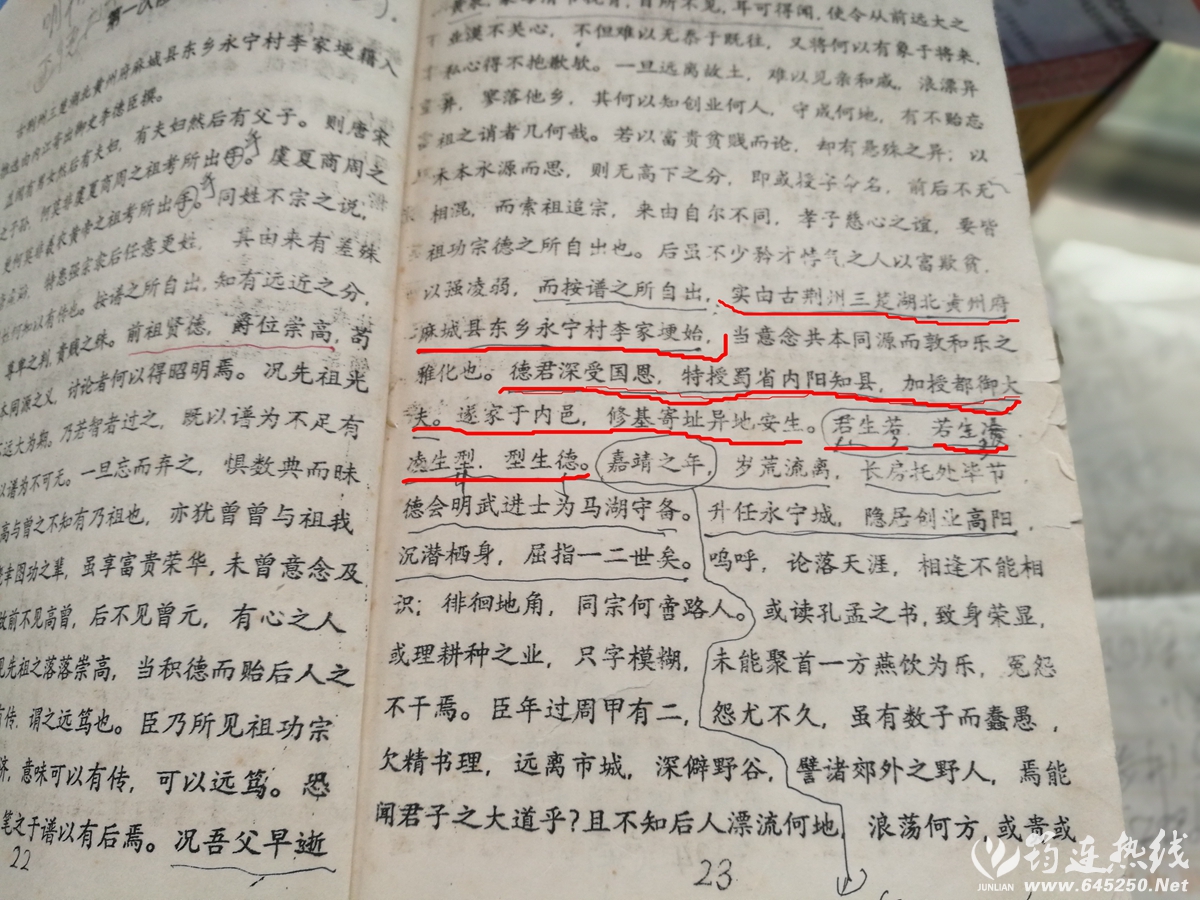 第一次
古荆州三楚湖北黄州府麻城县东乡永宁村李家埂籍入
内江寄治御史李德臣撰。
盖闻有男女然后有夫妇,有夫妇然后有父子。则唐宋
之子孙,何莫非虞夏商周之祖考所出乎。虞夏商周之
更何莫非羲农黄帝之祖考所出乎。同姓不宗之说,
特患强宗家后任意更姓,其由来有差殊
何如以有传也。按谱之所自出,知有远近之分,
尊卑之判,贵贱之殊。前祖贤德,爵位崇高,苟
本同源之义,讨论者何以得昭明焉。况先祖光
远大为期。乃若智者过之,既以谱为不足有
以谱为不可元。一旦忘而弃之,惧数典而昧
高与曾之不知有乃祖也,亦犹曾曾与祖我
丰图功之辈,虽享富贵荣华,未曾意念及
故前不见高曾,后不见曾元,有心之人
见先祖之落落崇高,当积德而贻后人之
有传,谓之远笃也。臣乃所见祖功宗
意味可以有传,可以远笃。恐
笔之于谱以有后焉。况吾父早逝
22
目所不见,耳可得闻,使令从前远大之
业漠不关心,不但难以无忝于既往,又将何以有象于将来,
私心得不抱歉欤。一旦远离故土,难以见亲和戚,浪漂异
井,寥落他乡,其何以知创业何人,守成何地,有不贻忘
祖之诮者几何哉。若以富贵贫贱而论,却有悬殊之异;以
木本水源而思,则无高下之分,即或授子命名,前后不无
相混,而索祖追宗,来由自尔不同,孝子慈心之谊,要皆
祖功宗德之所自出也。后虽不少矜才恃气之人以富欺贫,
以强凌弱,而按谱之所自出,实由古荆州三楚湖北黄州府
麻城县东乡永宁村李家埂始,当意念共本同源而敦和乐之
雅化也。德君深受国恩,特授蜀省内阳知县,加授都御大
夫。遂家于内邑,修基寄址异地安生。君生若,若生凌,
凌生型,型生德。嘉靖之年,岁荒流离,长房托处毕节,
德会明武进士为马湖守备。升任永宁城,隐居创业高阳,
沉潜栖身,屈指一二世矣。呜呼,论落天涯,相逢不能相
识;徘徊地角,同宗何啻路人。或读孔孟之书,致身荣显,
或理耕种之业,只字模糊,未能聚首一方燕饮为乐,冤怨
不干焉。臣年过周甲有二,怨尤不久,虽有数子而蠢愚,
欠精书理,远离市城,深僻野谷,譬诸郊外之野人,焉能
闻君子之大道乎?且不知后人漂流何地,浪荡何方,或贵或
23
筠连热线
JUNLIAN www.645250.Net